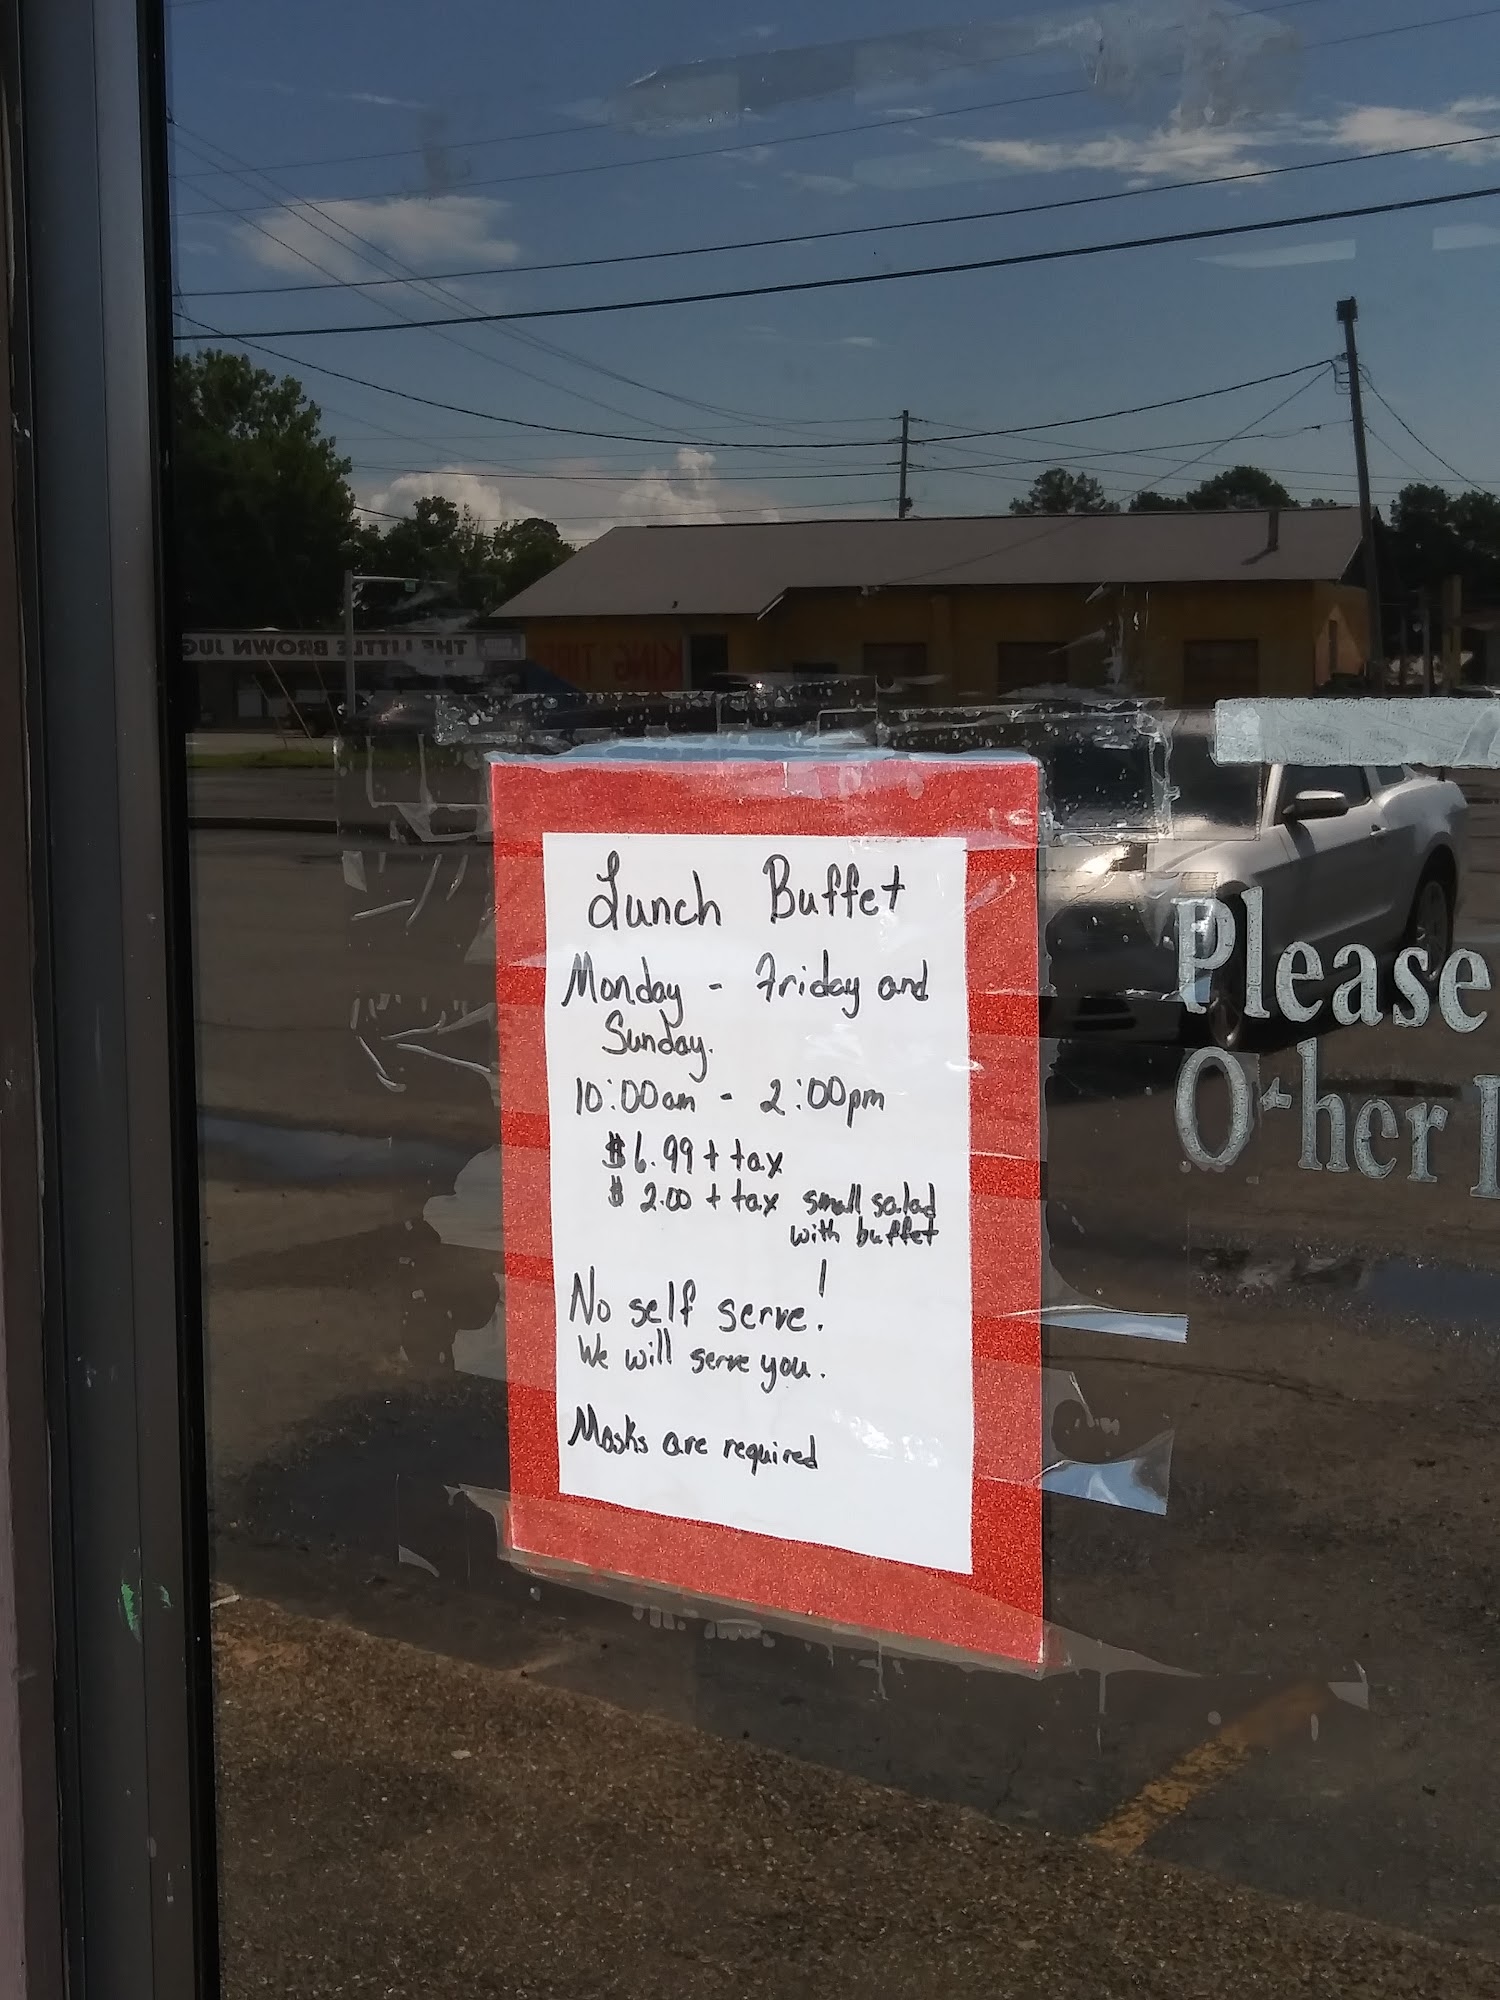 THE LITTLE BROWN JUG
KING TIRE
Lunch Buffet
Monday - Friday and
Sunday.
10:00am - 2:00pm
$6.99 + tax
$ 2.00 + tax small salad
with buffet
No self serve!
We will serve you.
Masks are required
Please
Other